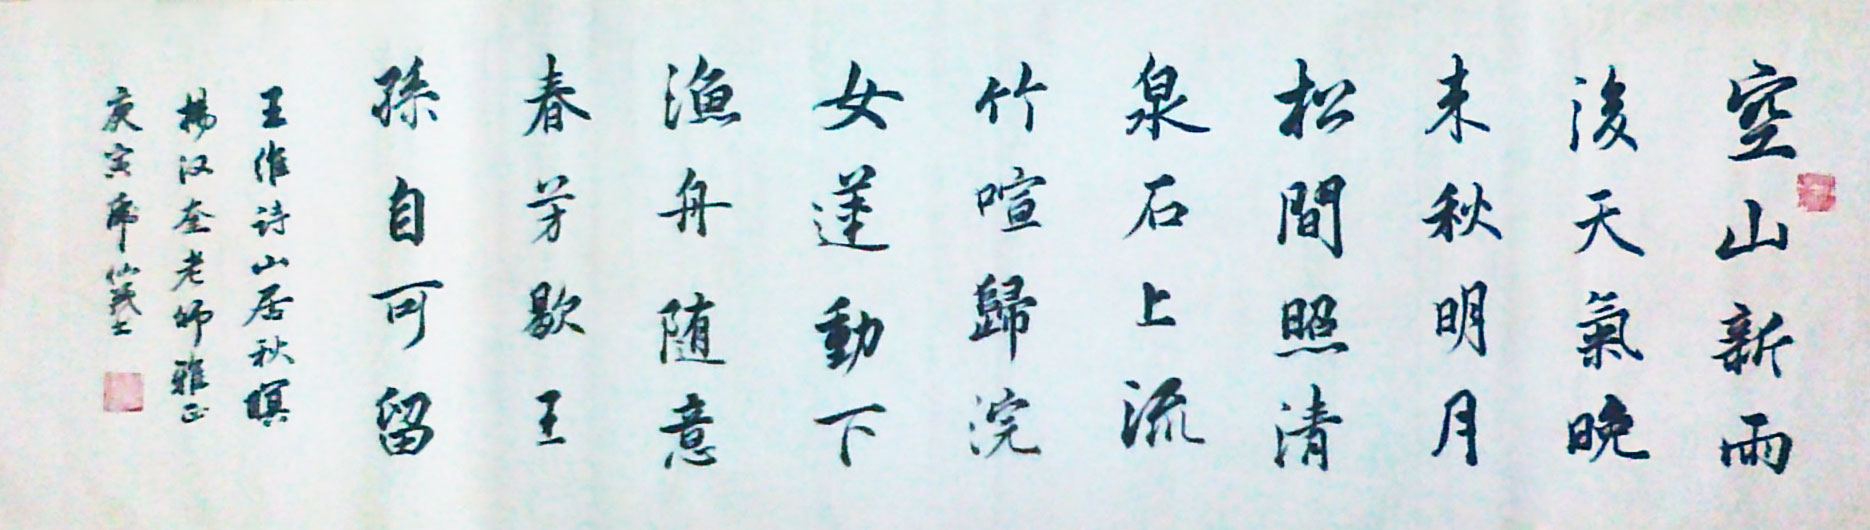 空山新雨
後天氣晚
来秋明月
松間照清
泉石上流
竹喧歸浣
女蓮動下
漁舟随意
春芳歇王
孫自可留
王维诗山居秋暝
楊汉奎老师雅正
庚寅席